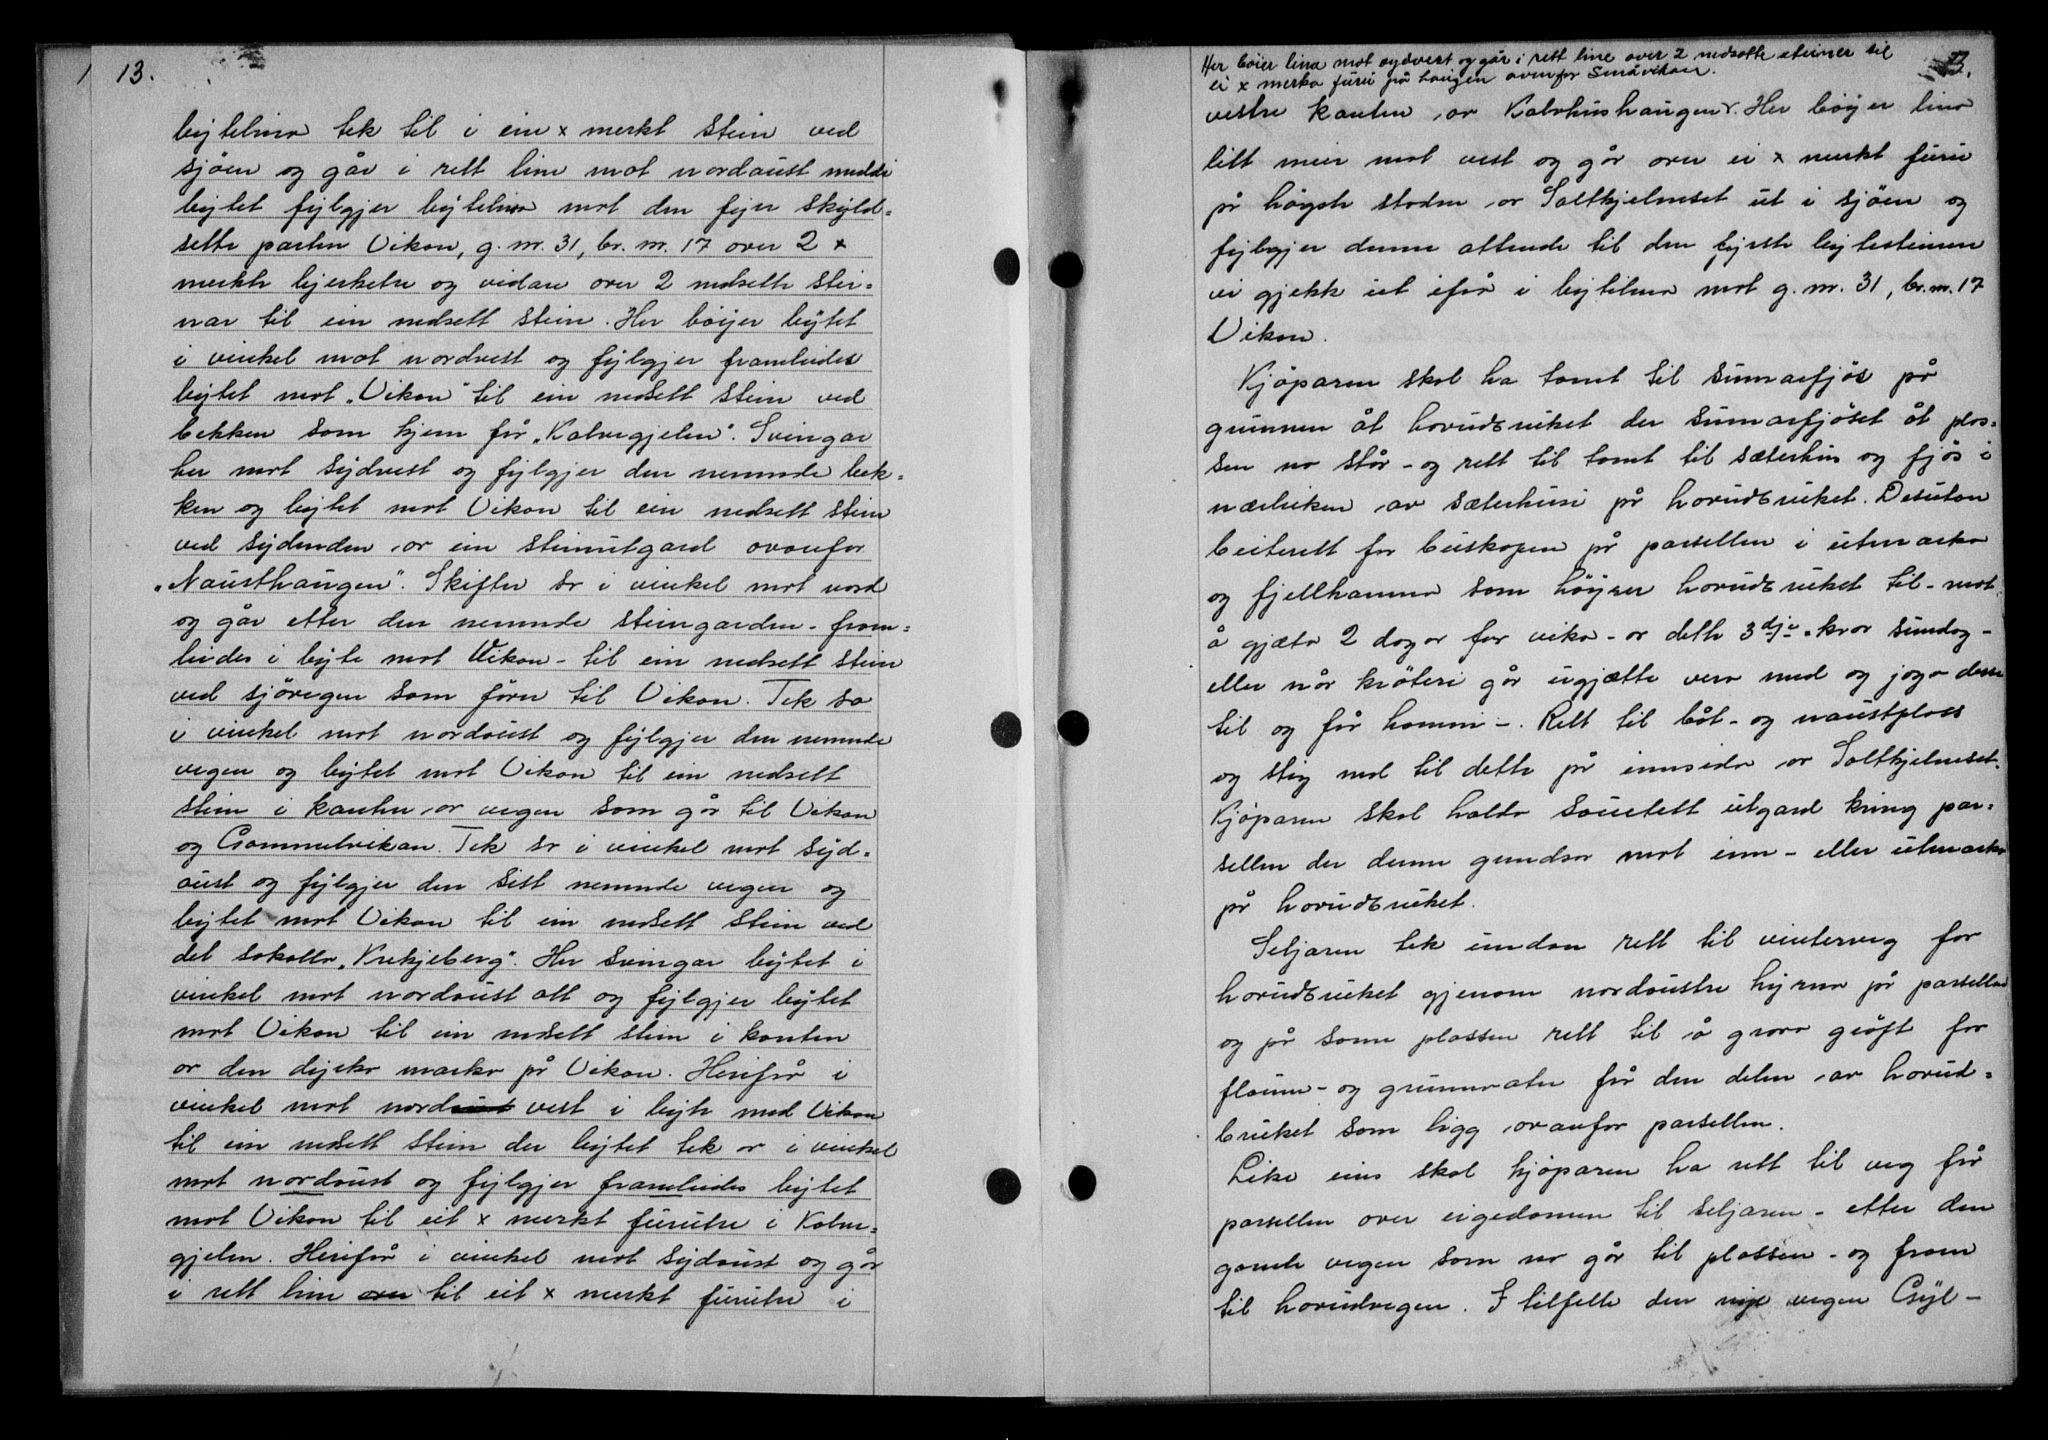 13.
bytelina tek til i ein x merkt stein ved
sjöen og går i rett line mot nordaust midde
bytet fylgjer bytelina mot den fyrr skyld-
sette parten Vikan, g. nr. 31, br. nr. 17 over 2 x
merkte bjerketre og vidare over 2 nedsette stei-
nar til ein nedsett stein. Her böyer bytet
i vinkel mot nordvest og fylgjer framleides
bytet mot "Vikan" til ein nedsett stein ved
bekken som kjem frå "Kalvegjelen". Svingar
her mot sydvest og fylgjer den nemnde bek-
ken og bytet mot Vikan til ein nedsett stein
ved sydenden av ein steinutgard ovanfor
"Nausthaugen". Skifter so i vinkel mot nord
og går etter den nemnde steingarden - fram-
leides i byte mot Vikan - til ein nedsett stein
ved sjövegen som förer til Vikan. Tek so
i vinkel mot nordaust og fylgjer den nemnde
vegen og bytet mot Vikan til ein nedsett
stein i kanten av vegen som går til Vikan
og Gammelvikan. Tek so i vinkel mot syd-
aust og fylgjer den sist nemnde vegen og
bytet mot Vikan til ein nedsett stein ved
det sokalla "Krekjeberg". Her svingar bytet i
vinkel mot nordaust att og fylgjer bytet
mot Vikan til ein nedsett stein i kanten
av den dyrka marka på Vikan. Herifrå i
vinkel mot nordaust vest i byte med Vikan
til ein nedsett stein der bytet tek av i vinkel
mot nordaust og fylgjer framleides bytet
mot Vikan til eit x merkt furutre i Kalve-
gjelen. Herifrå i vinkel mot sydaust og går
i rett line over til eit x merkt furutre i
Her böier lina mot sydvest og går i rett line over 2 nedsatte steiner til
ei x merka furu på haugen ovenfor Småvikan.
vestre kanten av Kalvhushaugen. Her böyer lina
litt meir mot vest og går over ei x merkt furu
på högste staden av Saltkjelneset ut i sjöen og
fylgjer denne attende til den fyrste bytesteinen
vi gjekk ut ifrå i bytelina mot g. nr. 31, br. nr. 17
Vikan.
Kjöparen skal ha tomt til sumarfjös på
grunnen åt hovudbruket der sumarfjöset åt plas-
sen no står - og rett til tomt til sæterhus og fjös i
nærleiken av sæterhusi på hovudbruket. Desutan
beiterett for buskapen på parsellen i utmarka
og fjellhamna som höyrer hovudbruket til - mot
å gjæta 2 dagar for veka - av dette 3dje kvar sundag -
eller når kröteri går ugjætte vera med og jaga dem
til og frå hamni -. Rett til båt- og naustplass
og stig ned til dette på innsida av Saltkjelneset.
Kjöparen skal halda sauetett utgard kring par-
sellen der denne grensar mot inn- eller utmarka
på hovudbruket.
Seljaren tek undan rett til vinterveg for
hovudbruket gjenom nordaustre hyrna på parsellen
og på same plassen rett til å grava gröft for
flaum- og grunnvatn frå den delen av hovud-
bruket som ligg ovanfor parsellen.
Like eins skal kjöparen ha rett til veg frå
parsellen over eigedomen til seljaren - etter den
gamle vegen som no går til plassen - og fram
til hovudvegen. I tilfelle den nye vegen Gyl-